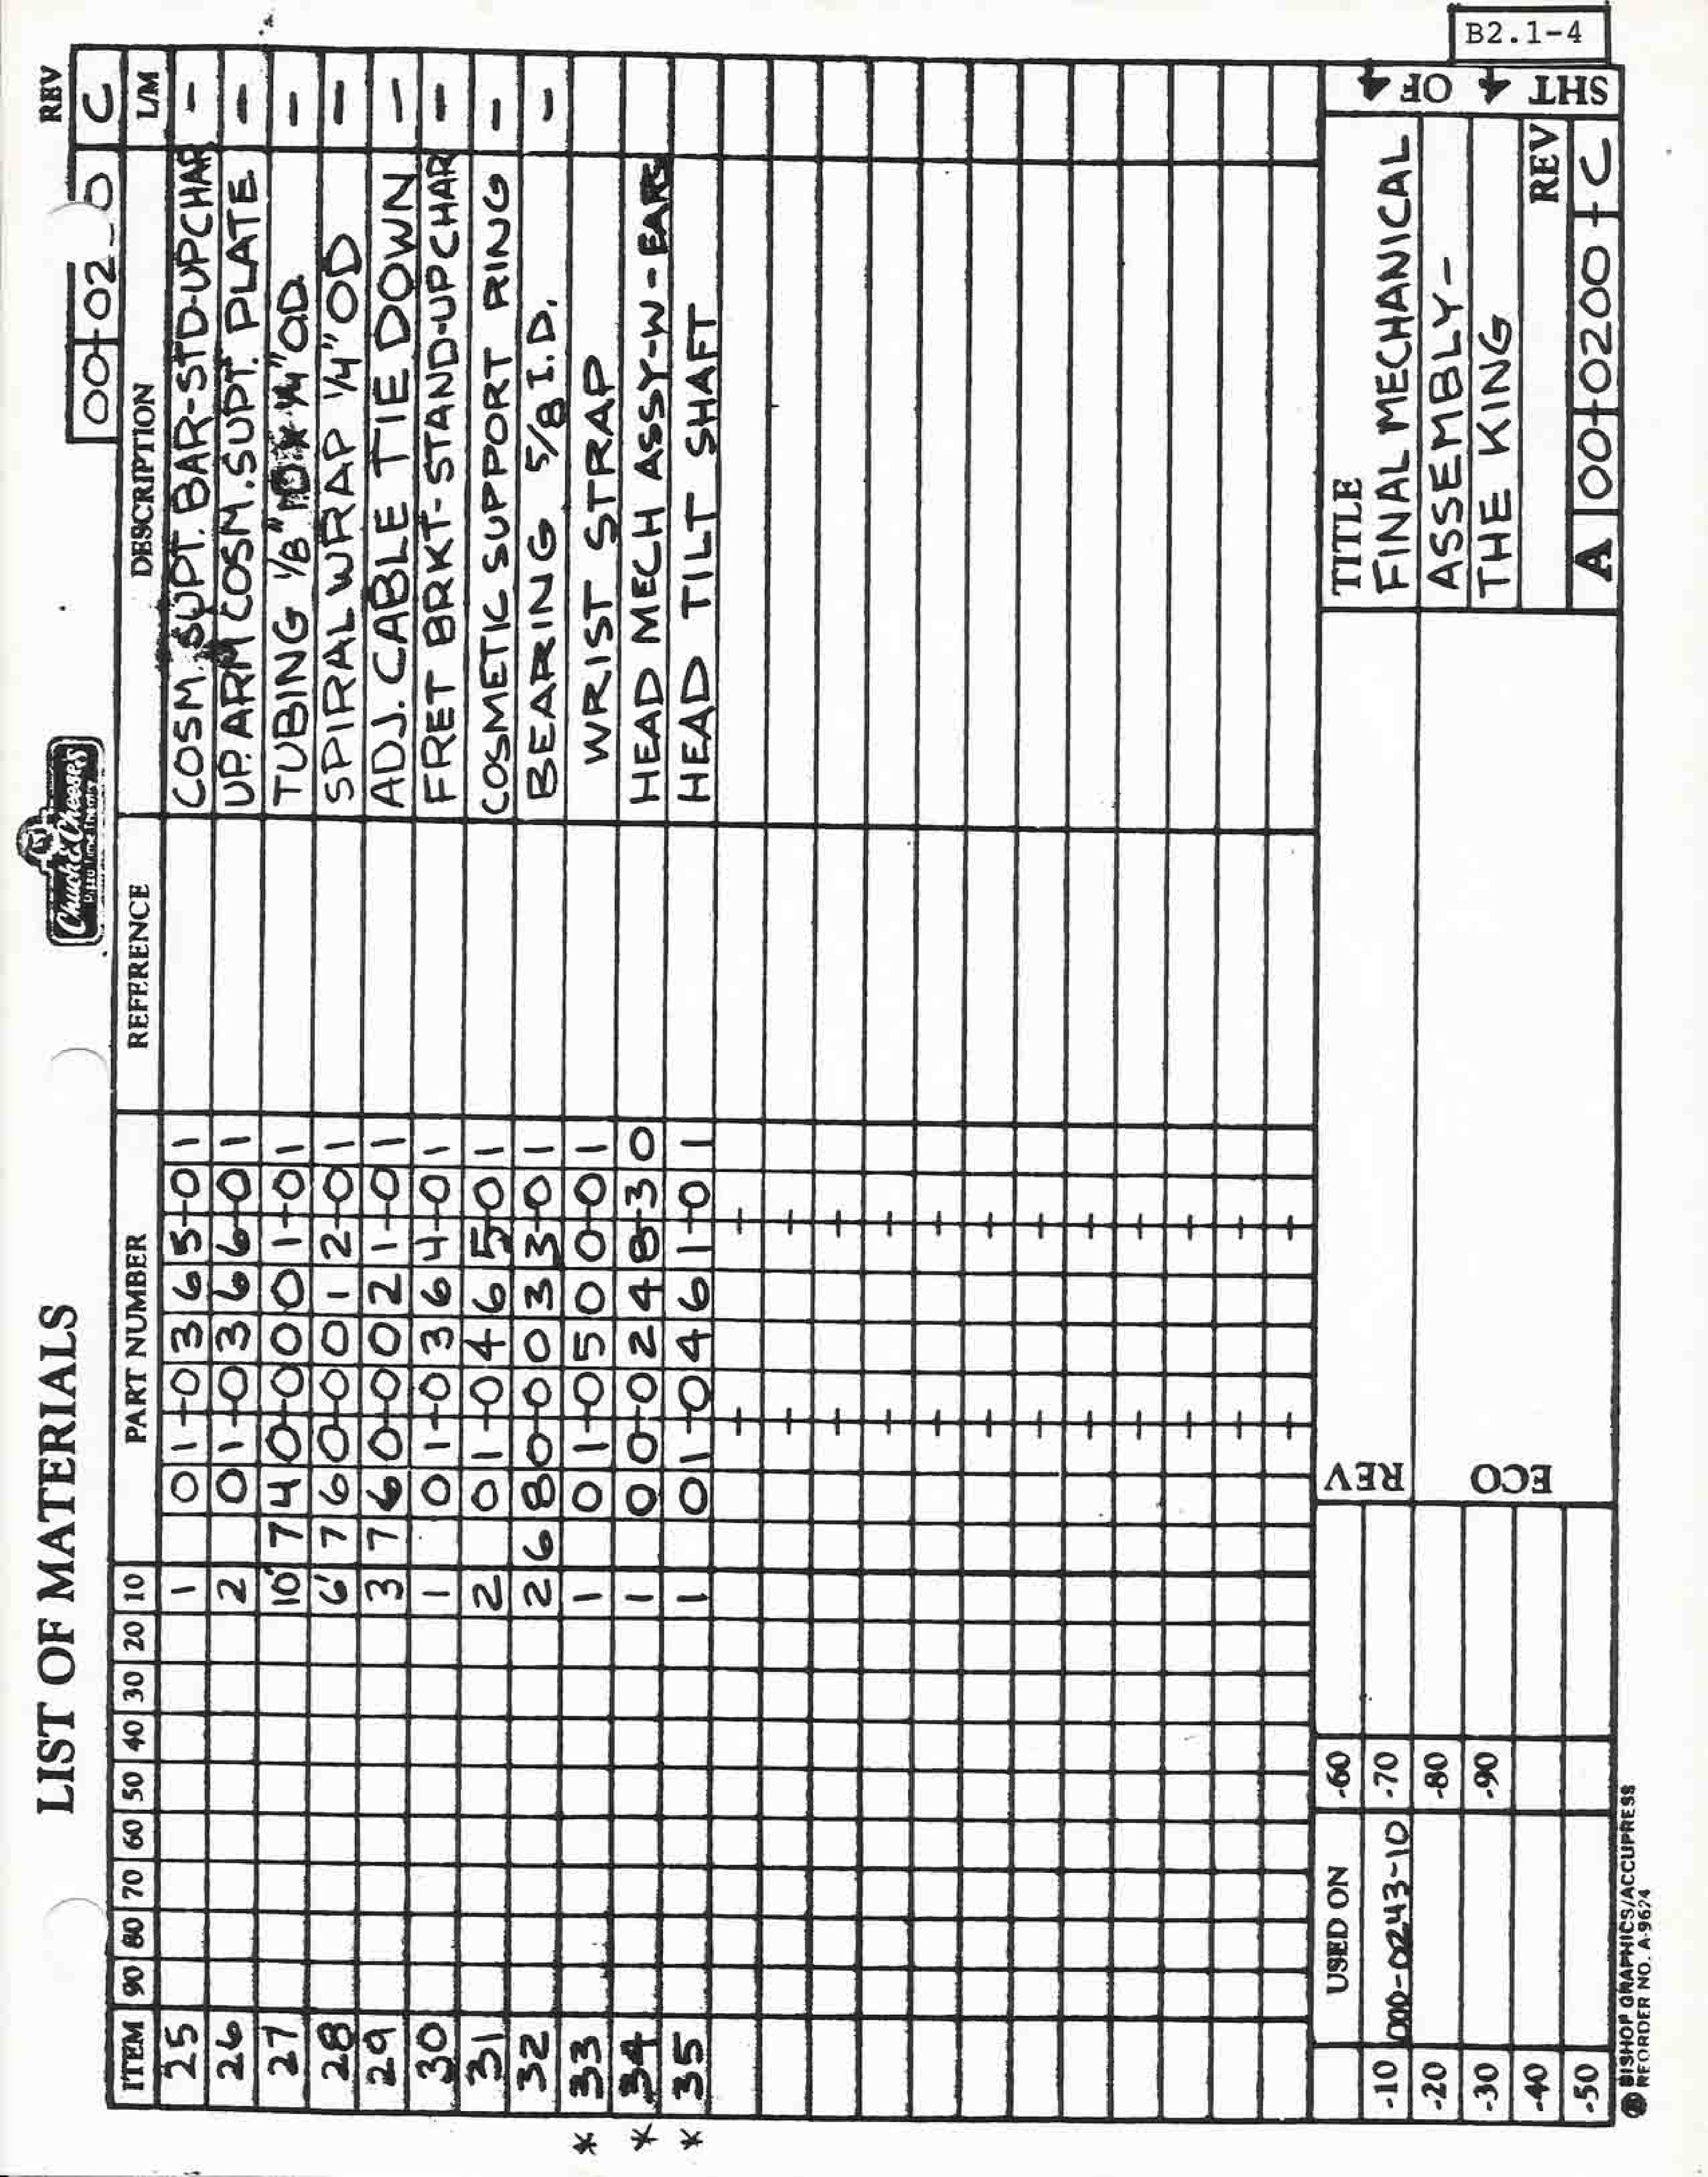 B2.1-4
LIST OF MATERIALS
Chuck E. Cheese's
Pizza Time Theatre
REV
00-02 0 C
ITEM 90 80 70 60 50 40 30 20 10 PART NUMBER REFERENCE DESCRIPTION L/M
25 1 01-0365-01 COSM. SUPT. BAR-STD-UPCHAR -
26 2 01-0366-01 UP. ARM COSM. SUPT. PLATE -
27 10' 740-0001-01 TUBING 1/8" ID x 1/4" OD. -
28 6' 760-0012-01 SPIRAL WRAP 1/4" OD -
29 3 760-0021-01 ADJ. CABLE TIE DOWN -
30 1 01-0364-01 FRET BRKT-STAND-UPCHAR -
31 2 01-0465-01 COSMETIC SUPPORT RING -
32 2 680-0033-01 BEARING 5/8 I.D. -
* 33 1 01-0500-01 WRIST STRAP
* 34 1 00-0248-30 HEAD MECH ASSY-W-EARS
* 35 1 01-0461-01 HEAD TILT SHAFT
USED ON -60 REV TITLE
-10 000-0243-10 -70 FINAL MECHANICAL
-20 -80 ECO ASSEMBLY-
-30 -90 THE KING
-40 REV
-50 A 00-0200- C
SHT 4 OF 4
BISHOP GRAPHICS/ACCUPRESS
REORDER NO. A-9624